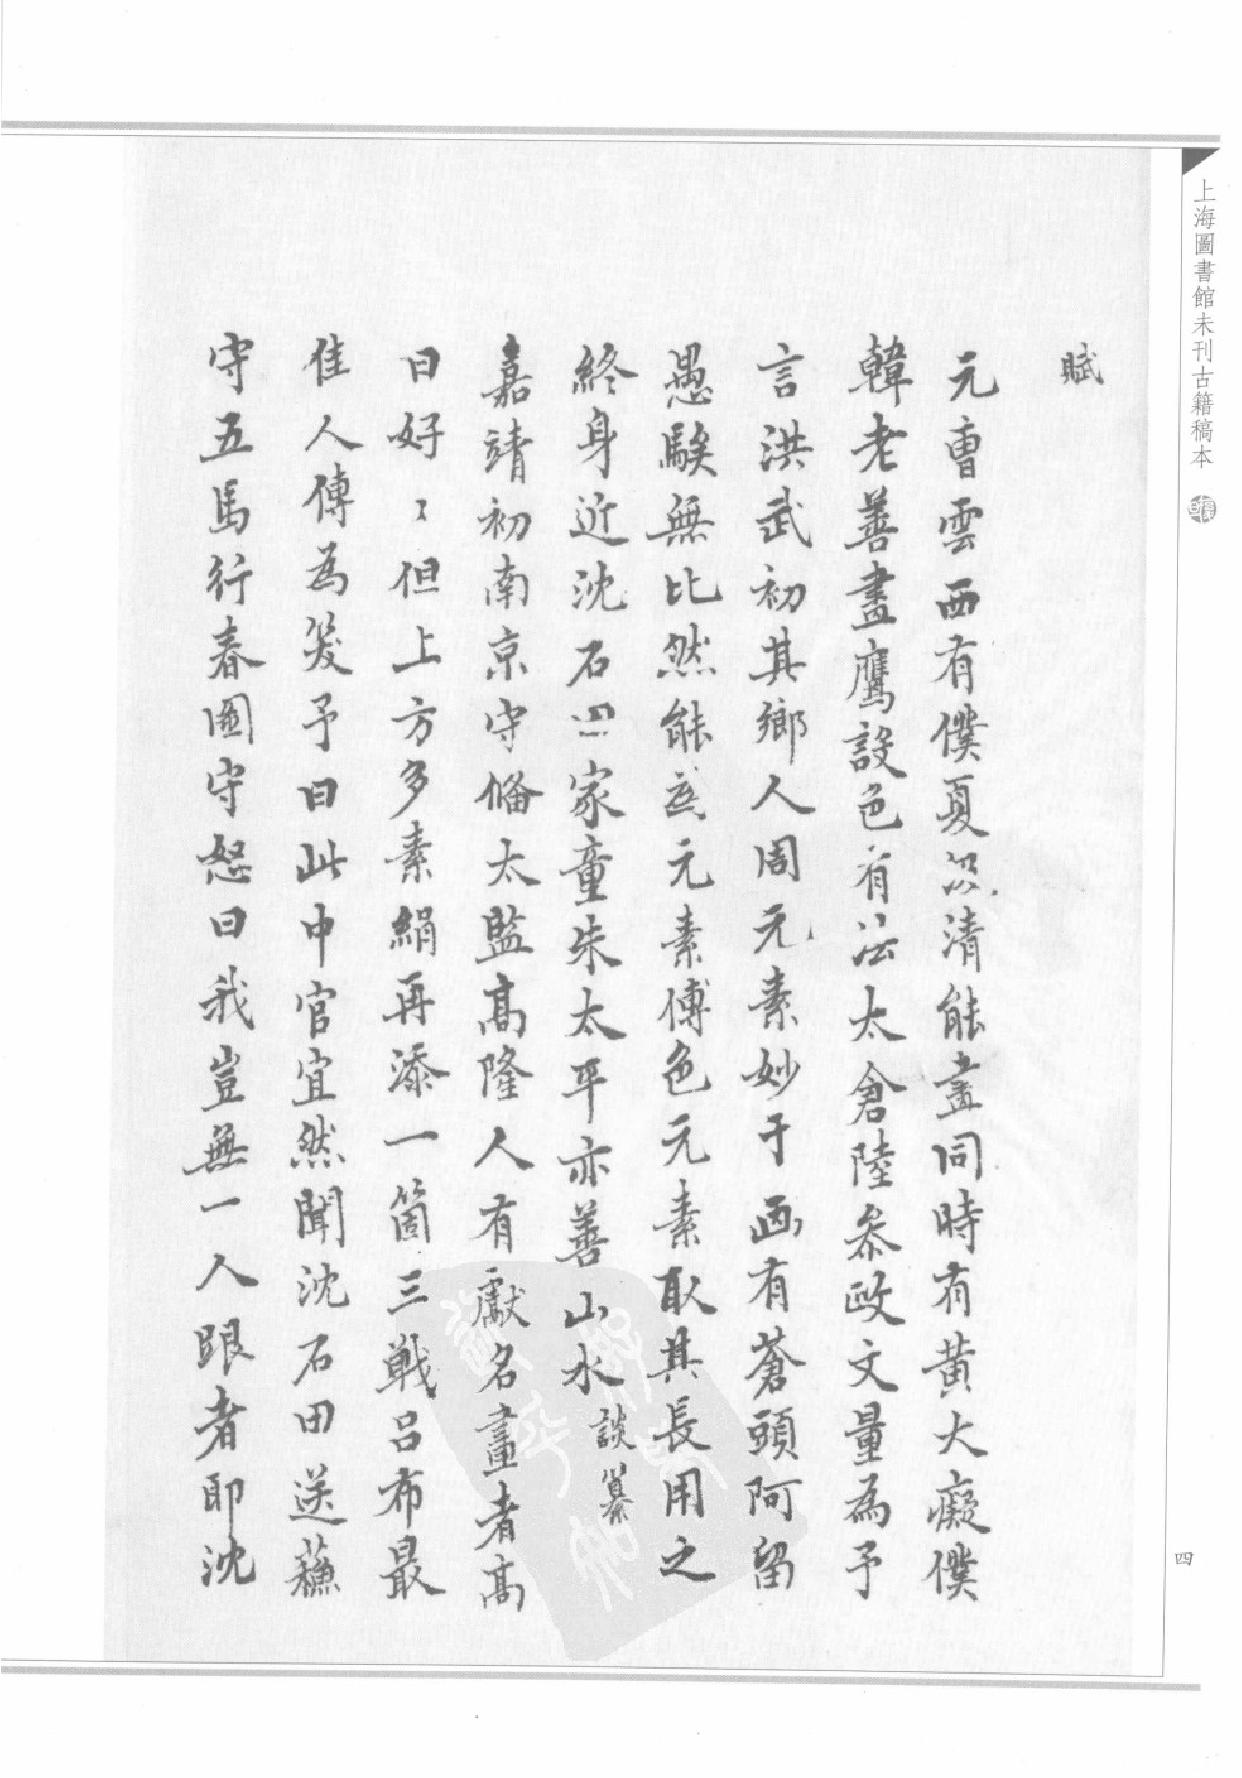 上海圖書館未刊古籍稿本
四
賦
元曹雲西有僕夏以清能畫同時有黃大癡僕
韓老善畫鷹設色有法太倉陸叅政文量為予
言洪武初其鄉人周元素妙于画有蒼頭阿留
愚騃無比然能為元素傅色元素取其長用之
終身近沈石田家童朱太平亦善山水談纂
嘉靖初南京守俻太監高隆人有獻名畫者高
曰好〻但上方多素絹再添一箇三戰呂布最
佳人傳為笑予曰此中官宜然聞沈石田送蘇
守五馬行春圖守怒曰我豈無一人跟者即沈